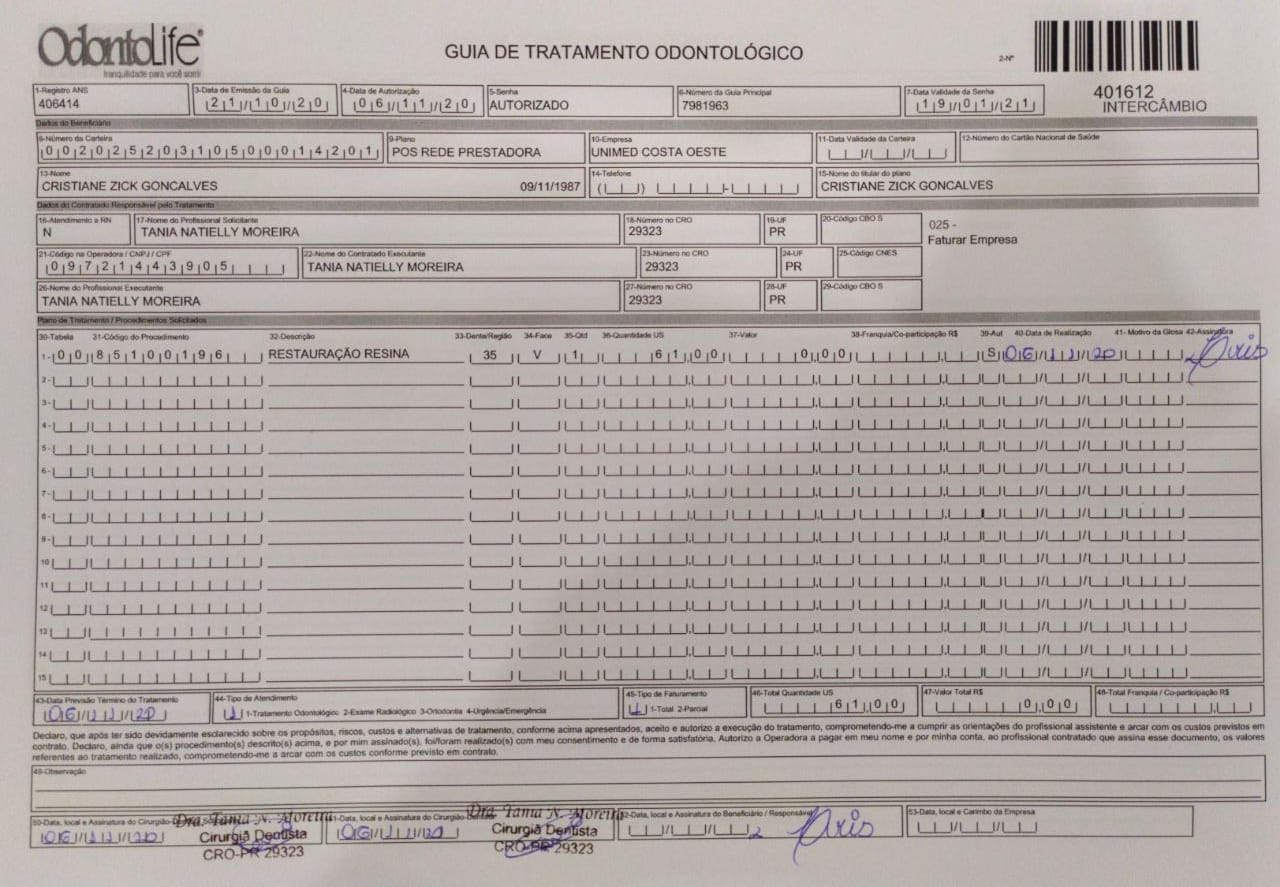 OdontoLife
tranquilidade para você sorrir
GUIA DE TRATAMENTO ODONTOLÓGICO
2-Nº
401612
INTERCÂMBIO
1-Registro ANS
406414
3-Data de Emissão da Guia
21/10/20
4-Data de Autorização
06/11/20
5-Senha
AUTORIZADO
6-Número da Guia Principal
7981963
7-Data Validade da Senha
19/01/21
Dados do Beneficiário
8-Número da Carteira
00202520310500014201
9-Plano
POS REDE PRESTADORA
10-Empresa
UNIMED COSTA OESTE
11-Data Validade da Carteira
12-Número do Cartão Nacional de Saúde
13-Nome
CRISTIANE ZICK GONCALVES 09/11/1987
14-Telefone
15-Nome do titular do plano
CRISTIANE ZICK GONCALVES
Dados do Contratado Responsável pelo Tratamento
16-Atendimento a RN
N
17-Nome do Profissional Solicitante
TANIA NATIELLY MOREIRA
18-Número no CRO
29323
19-UF
PR
20-Código CBO S
025 -
Faturar Empresa
21-Código na Operadora / CNPJ / CPF
09721443905
22-Nome do Contratado Executante
TANIA NATIELLY MOREIRA
23-Número no CRO
29323
24-UF
PR
25-Código CNES
26-Nome do Profissional Executante
TANIA NATIELLY MOREIRA
27-Número no CRO
29323
28-UF
PR
29-Código CBO S
Plano de Tratamento / Procedimentos Solicitados
30-Tabela 31-Código do Procedimento 32-Descrição 33-Dente/Região 34-Face 35-Qtd 36-Quantidade US 37-Valor 38-Franquia/Co-participação R$ 39-Aut 40-Data de Realização 41- Motivo da Glosa 42-Assinatura
1- 00 85100196 RESTAURAÇÃO RESINA 35 V 1 61,00 0,00 S 06/11/20 Cris
2-
3-
4-
5-
6-
7-
8-
9-
10
11
12
13
14
15
43-Data Previsão Término do Tratamento
06/11/20
44-Tipo de Atendimento
1 1-Tratamento Odontológico 2-Exame Radiológico 3-Ortodontia 4-Urgência/Emergência
45-Tipo de Faturamento
1 1-Total 2-Parcial
46-Total Quantidade US
61,00
47-Valor Total R$
0,00
48-Total Franquia / Co-participação R$
Declaro, que após ter sido devidamente esclarecido sobre os propósitos, riscos, custos e alternativas de tratamento, conforme acima apresentados, aceito e autorizo a execução do tratamento, comprometendo-me a cumprir as orientações do profissional assistente e arcar com os custos previstos em
contrato. Declaro, ainda que o(s) procedimento(s) descrito(s) acima, e por mim assinado(s), foi/foram realizado(s) com meu consentimento e de forma satisfatória. Autorizo a Operadora a pagar em meu nome e por minha conta, ao profissional contratado que assina esse documento, os valores
referentes ao tratamento realizado, comprometendo-me a arcar com os custos conforme previsto em contrato.
49-Observação
50-Data, local e Assinatura do Cirurgião-Dentista
06/11/20
Dra. Tania N. Moreira
Cirurgiã Dentista
CRO-PR 29323
51-Data, local e Assinatura do Cirurgião-Dentista
06/11/20
Dra. Tania N. Moreira
Cirurgiã Dentista
CRO-PR 29323
52-Data, local e Assinatura do Beneficiário / Responsável
Cris
53-Data, local e Carimbo da Empresa